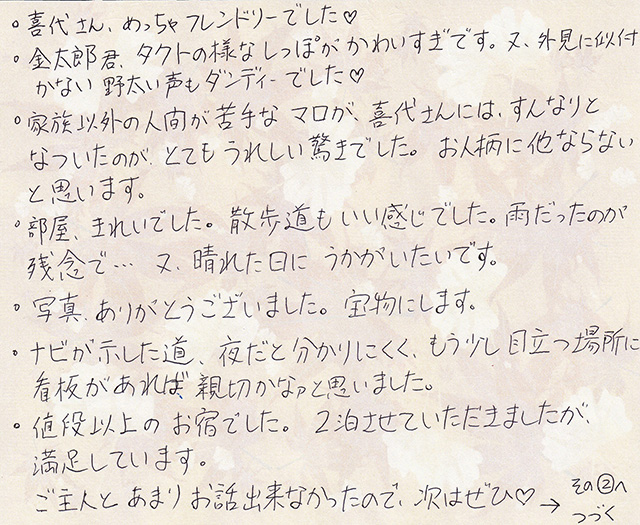 ◦ 喜代さん、めっちゃフレンドリーでした♡
◦ 金太郎君、タクトの様なしっぽがかわいすぎです。又、外見に似付
かない野太い声もダンディーでした♡
◦ 家族以外の人間が苦手なマロが、喜代さんには、すんなりと
なついたのが、とてもうれしい驚きでした。お人柄に他ならない
と思います。
◦ 部屋、きれいでした。散歩道もいい感じでした。雨だったのが
残念で… 又、晴れた日にうかがいたいです。
◦ 写真、ありがとうございました。宝物にします。
◦ ナビが示した道、夜だと分かりにくく、もう少し目立つ場所に
看板があれば、親切かなァと思いました。
◦ 値段以上のお宿でした。2泊させていただきましたが、
満足しています。
ご主人とあまりお話出来なかったので、次はぜひ♡ → その②へ
つづく